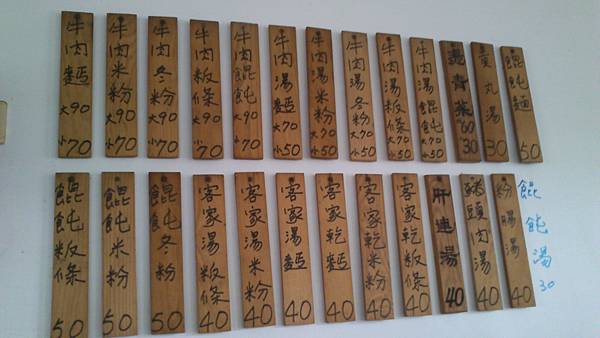 牛肉麵
大90
小70
牛肉米粉
大90
小70
牛肉冬粉
大90
小70
牛肉粄條
大90
小70
牛肉餛飩
大90
小70
牛肉湯麵
大70
小50
牛肉湯米粉
大70
小50
牛肉湯冬粉
大70
小50
牛肉湯粄條
大70
小50
牛肉湯餛飩
大70
小50
青菜
60
30
貢丸湯
30
餛飩麵
50
餛飩粄條
50
餛飩米粉
50
餛飩冬粉
50
客家湯粄條
40
客家湯米粉
40
客家湯麵
40
客家乾麵
40
客家乾米粉
40
客家乾粄條
40
肝連湯
40
豬頭肉湯
40
粉腸湯
40
餛飩湯
30